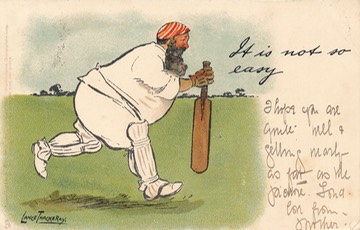 It is not so
easy
I hope you are
quite well &
getting nearly
as fat as the
picture. Long
for from
Mother.
LANCE THACKERAY.